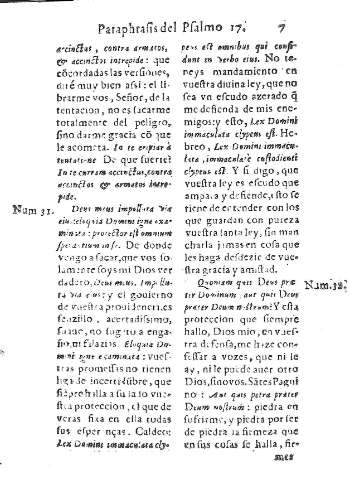 Paraphrasis del Psalmo 17. 7
accinctus, contra armatos,
& accinctus intrepide: que
cõcordadas las versiones,
diré muy bien assi: el li-
brarme vos, Señor, de la
tentacion, no es sacarme
totalmente del peligro,
sino darme gracia cõ que
le acometa. In te eripiar à
tentatione. De que suerte?
In te curram accinctus, contra
accinctus & armatos intre-
pide.
Num 31.
Deus meus impolluta via
eius: eloquia Domini igne exa-
minata: protector est omnium
sperantium in se. De donde
vengo a sacar, que vos so-
lamente soys mi Dios ver
dadero, Deus meus. Impollu
ta via eius: y el gouierno
de vuestra prouidencia, es
senzillo, acertadissimo,
suaue, no sugeto a enga-
ños, ni falazias. Eloquia Do-
mini igne examinata: vues-
tras promessas no tienen
liga de incertidũbre, que
siẽpre halla a su lado vues-
tra proteccion, el que de
veras fixa en ella todas
sus esperanças. Caldeo:
Lex Domini immaculata cly-
peus est omnibus qui confi-
dunt in verbo eius. No te-
neys mandamiento en
vuestra diuina ley, que no
sea vn escudo azerado q̃
me defienda de mis ene-
migos: y esto, Lex Domini
immaculata clypeus est. He-
breo, Lex Domini immacu-
lata, immaculatè custodienti
clypeus est. Y si digo, que
vuestra ley es escudo que
ampara y defiende, esto se
tiene de entender con los
que guardan con pureza
vuestra santa ley, sin man
charla jamas en cosa que
les haga desdezir de vues-
tra gracia y amistad.
Num. 32.
Quoniam quis Deus præ
ter Dominum aut quis Deus
præter Deum nostrum? Y esta
proteccion que siempre
hallo, Dios mio, en vues-
tra defensa, me haze con-
fessar a vozes, que ni le
ay, ni le puede auer otro
Dios, sino vos. Sãtes Pagni
no: Aut quis petra præter
Deum nostrum: piedra en
sufrirme, y piedra por ser
de piedra la firmeza que
en sus cosas se halla, fir-
mes